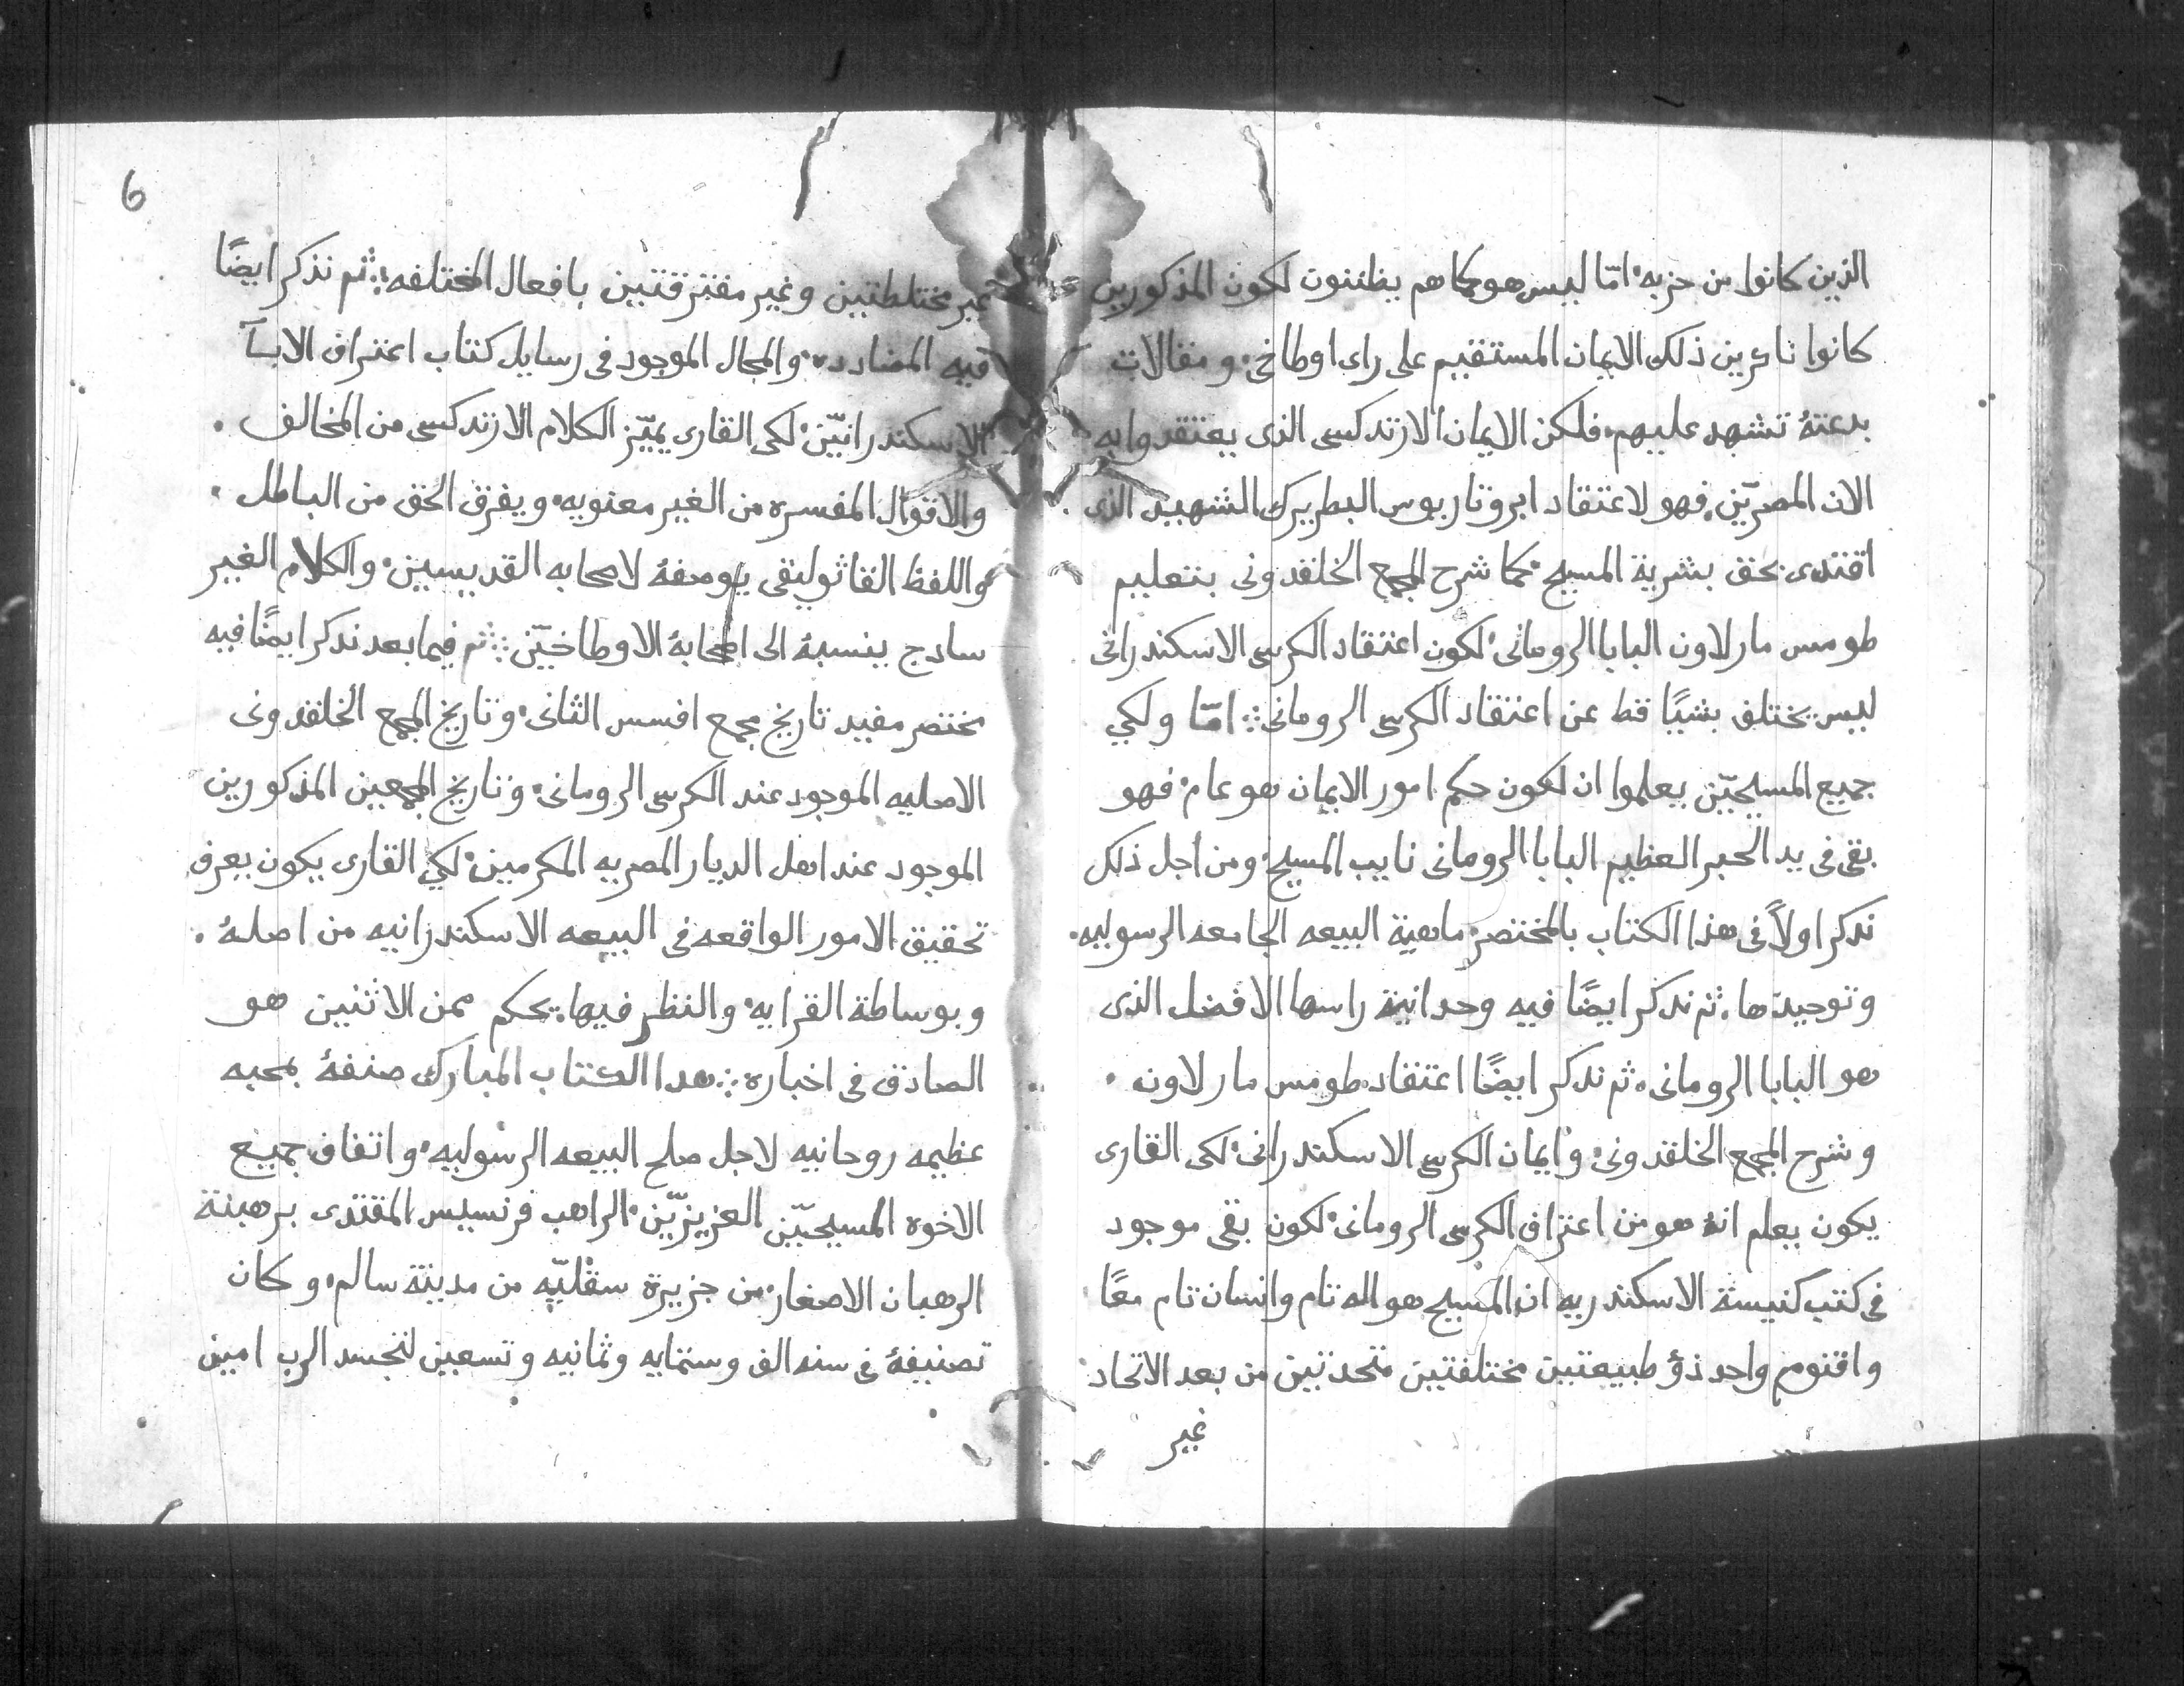 الذين كانوا من حزبه٬ امّا ليس هو كما هم يظننون لكون المذكورين
كانوا ناكرين ذلك الايمان المستقيم على راى اوطاخى٬ ومقالات
بدعتهُ تشهد عليهم٬ فلكن الايمان الارتدكسى الذى يعتقدوا به
الان المصريّن٬ فهو لاعتقاد ابروتاريوس البطريرك الشهيد الذى
اقتدى بحق بشرية المسيح٬ كما شرح المجمع الخلقدونى بتعليم
طومس مار لاون البابا الرومانى٬ لكون اعتقاد الكرسى الاسكندرانى
ليس يختلف بشيًا قط عن اعتقاد الكرسى الرومانى ⁘ امّا ولكي
جميع المسيحيّن يعلموا ان لكون حكم امور الايمان هو عام٬ فهو
بقى فى يد الحبر العظيم البابا الرومانى نايب المسيح٬ ومن اجل ذلك
ندكر اولاً فى هدا الكتاب بالمختصر٬ ماهية البيعه الجامعه الرسوليه٠
وتوحيدها٬ ثم ندكر ايضًا فيه وحدانية راسها الافضل الذى
هو البابا الرومانى٠ ثم ندكر ايضًا اعتقاد طومس مار لاون ٠
وشرح المجمع الخلقدونى٬ وايمان الكرسى الاسكندرانى٬ لكى القارى
يكون يعلم انهُ هو من اعتراف الكرسى الرومانى٬ لكون بقى موجود
فى كتب كنيسة الاسكندريه ان المسيح هو اله تام وانسان تام معًا
واقنوم واحد ذو طبيعتين مختلفتين متحدتين من بعد الاتحاد
غير
6
غير مختلطتين وغير مفترقتين بافعال المختلفه ⁘ ثم نذكر ايضًا
فيه المضادده٬ والمجال الموجود فى رسايل كتاب اعتراف الابآ
الاسكندرانيّن٬ لكى القارى يميّز الكلام الارتدكسى من المخالف ٠
والاقوال المفسره من الغير معنويه٬ ويفرق الحق من الباطل ٠
واللفظ القاثوليقى يوصفهُ لاصحابه القديسين٬ والكلام الغير
سادج ينسبهُ الى اصحابهُ الاوطاخيّن ⁘ ثم فيما بعد ندكر ايضًا فيه
مختصر مفيد تاريخ مجمع افسس الثانى٬ وتاريخ المجمع الخلقدونى
الاصليه الموجود عند الكرسى الرومانى٬ وتاريخ المجمعين المذكورين
الموجود عند اهل الديار المصريه المكرمين٬ لكي القارى يكون يعرف
تحقيق الامور الواقعه فى البيعه الاسكندرانيه من اصلهُ ٠
وبوساطة القرايه٬ والنظر فيها٬ يحكم ممن الاثنين هو
الصادق فى اخباره ⁘ هدا الكتاب المبارك صنفهُ بمحبه
عظيمه روحانيه لاجل صلح البيعه الرسوليه٬ واتفاق جميع
الاخوه المسيحيّن العزيزيّن٬ الراهب فرنسيس المقتدى برهبنة
الرهبان الاصغار٬ من جزيرة سقليّه من مدينة سالم٬ وكان
تصنيفهُ فى سنه الف وستمايه وثمانيه وتسعين لتجسد الرب امين